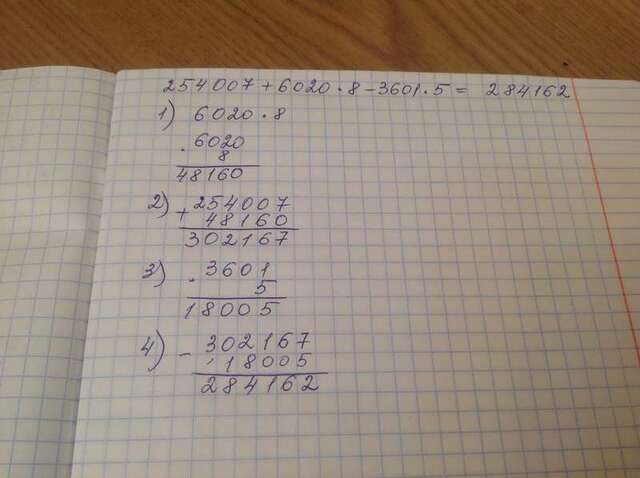 254007 + 6020 · 8 - 3601 · 5 = 284162
1) 6020 · 8
· 6020
8
48160
2) 254007
+ 48160
302167
3) 3601
· 5
18005
4) - 302167
18005
284162